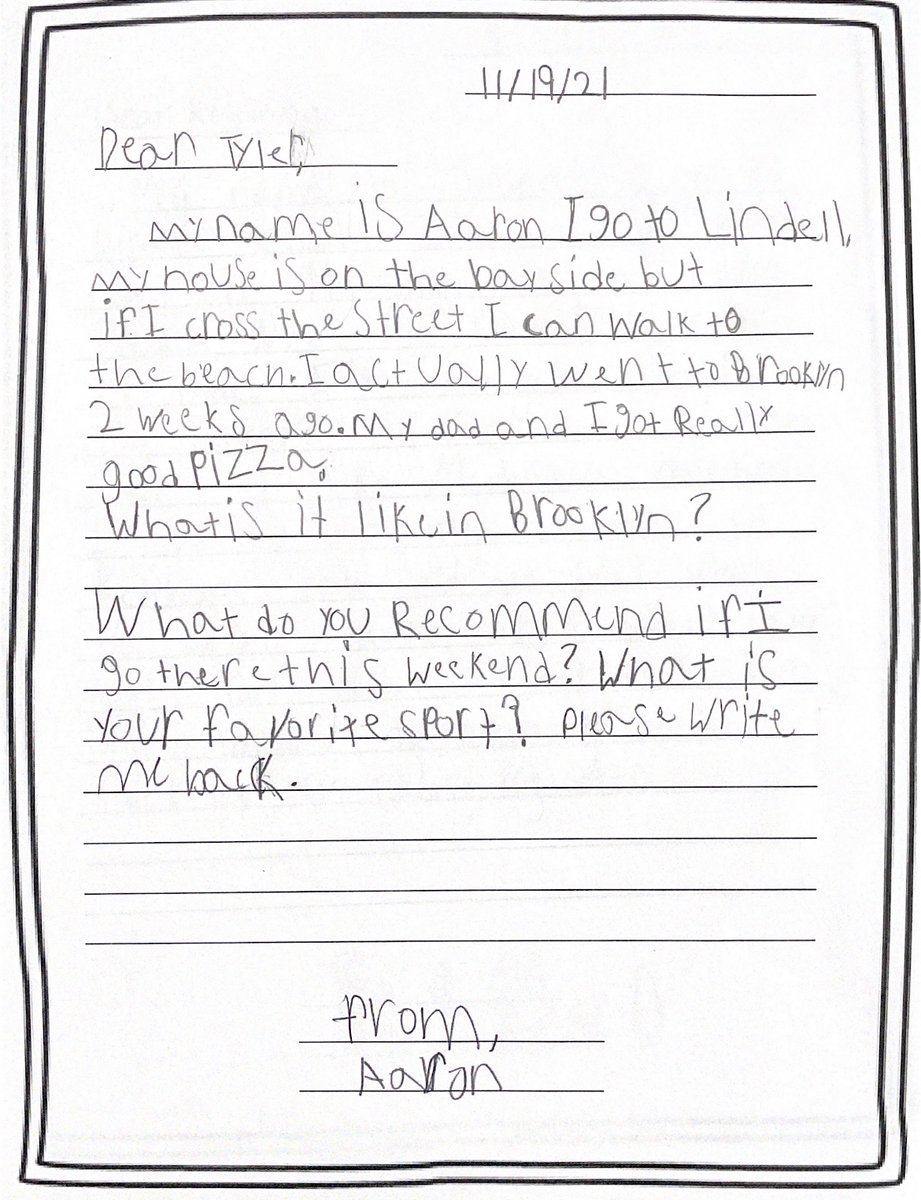 11/19/21
Dear Tyler,
My name is Aaron I go to Lindell.
My house is on the bay side but
if I cross the street I can walk to
the beach. I actually went to Brooklyn
2 weeks ago. My dad and I got Really
good pizza.
What is it like in Brooklyn?
What do you Recommend if I
go there this weekend? What is
your favorite sport? please write
me back.
From,
Aaron